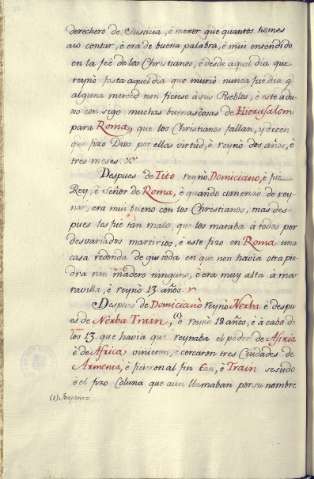 derechero de Justicia, é menor que quantos homes
aio contar, é era de buena palabra, é mui entendido
en la feé de los Christianos, é desde aquel dia que
reynó fasta aquel dia que murió nunca fue dia q̃
alguna merced non ficiese á sus Pueblos, é este adu
xo con sigo muchas buenas cosas de Hierusalem
para Roma, que los Christianos fallan, y dicen
que fizo Dios por ellas virtud, é reynó dos años, é
tres meses.
Despues de Tito reynó Domiciano, é fue
Rey, é Señor de Roma, é quando comenzó de rey-
nar, era mui bueno con los Christianos, mas des-
pues les fue tan malo, que los mataba á todos por
desvariados martirios, é este fizo en Roma una
casa redonda de que toda en que non havia otra pie
dra nin madero ninguno, é era muy alta á ma-
ravilla, é reynó 13 años.
Despues de Domiciano reynó Nerba é despu
es de Nerba Train, (1) é reynó 18 años, é á cabo de
los 13 que havia que reynaba el poder de Africa
é de Africa vinieron, é cercaron tres Ciudades de
Armenia, é fueron al fin Train seyendo
é el fizo Coluna que aún llamaban por su nombre
(1) Trajano